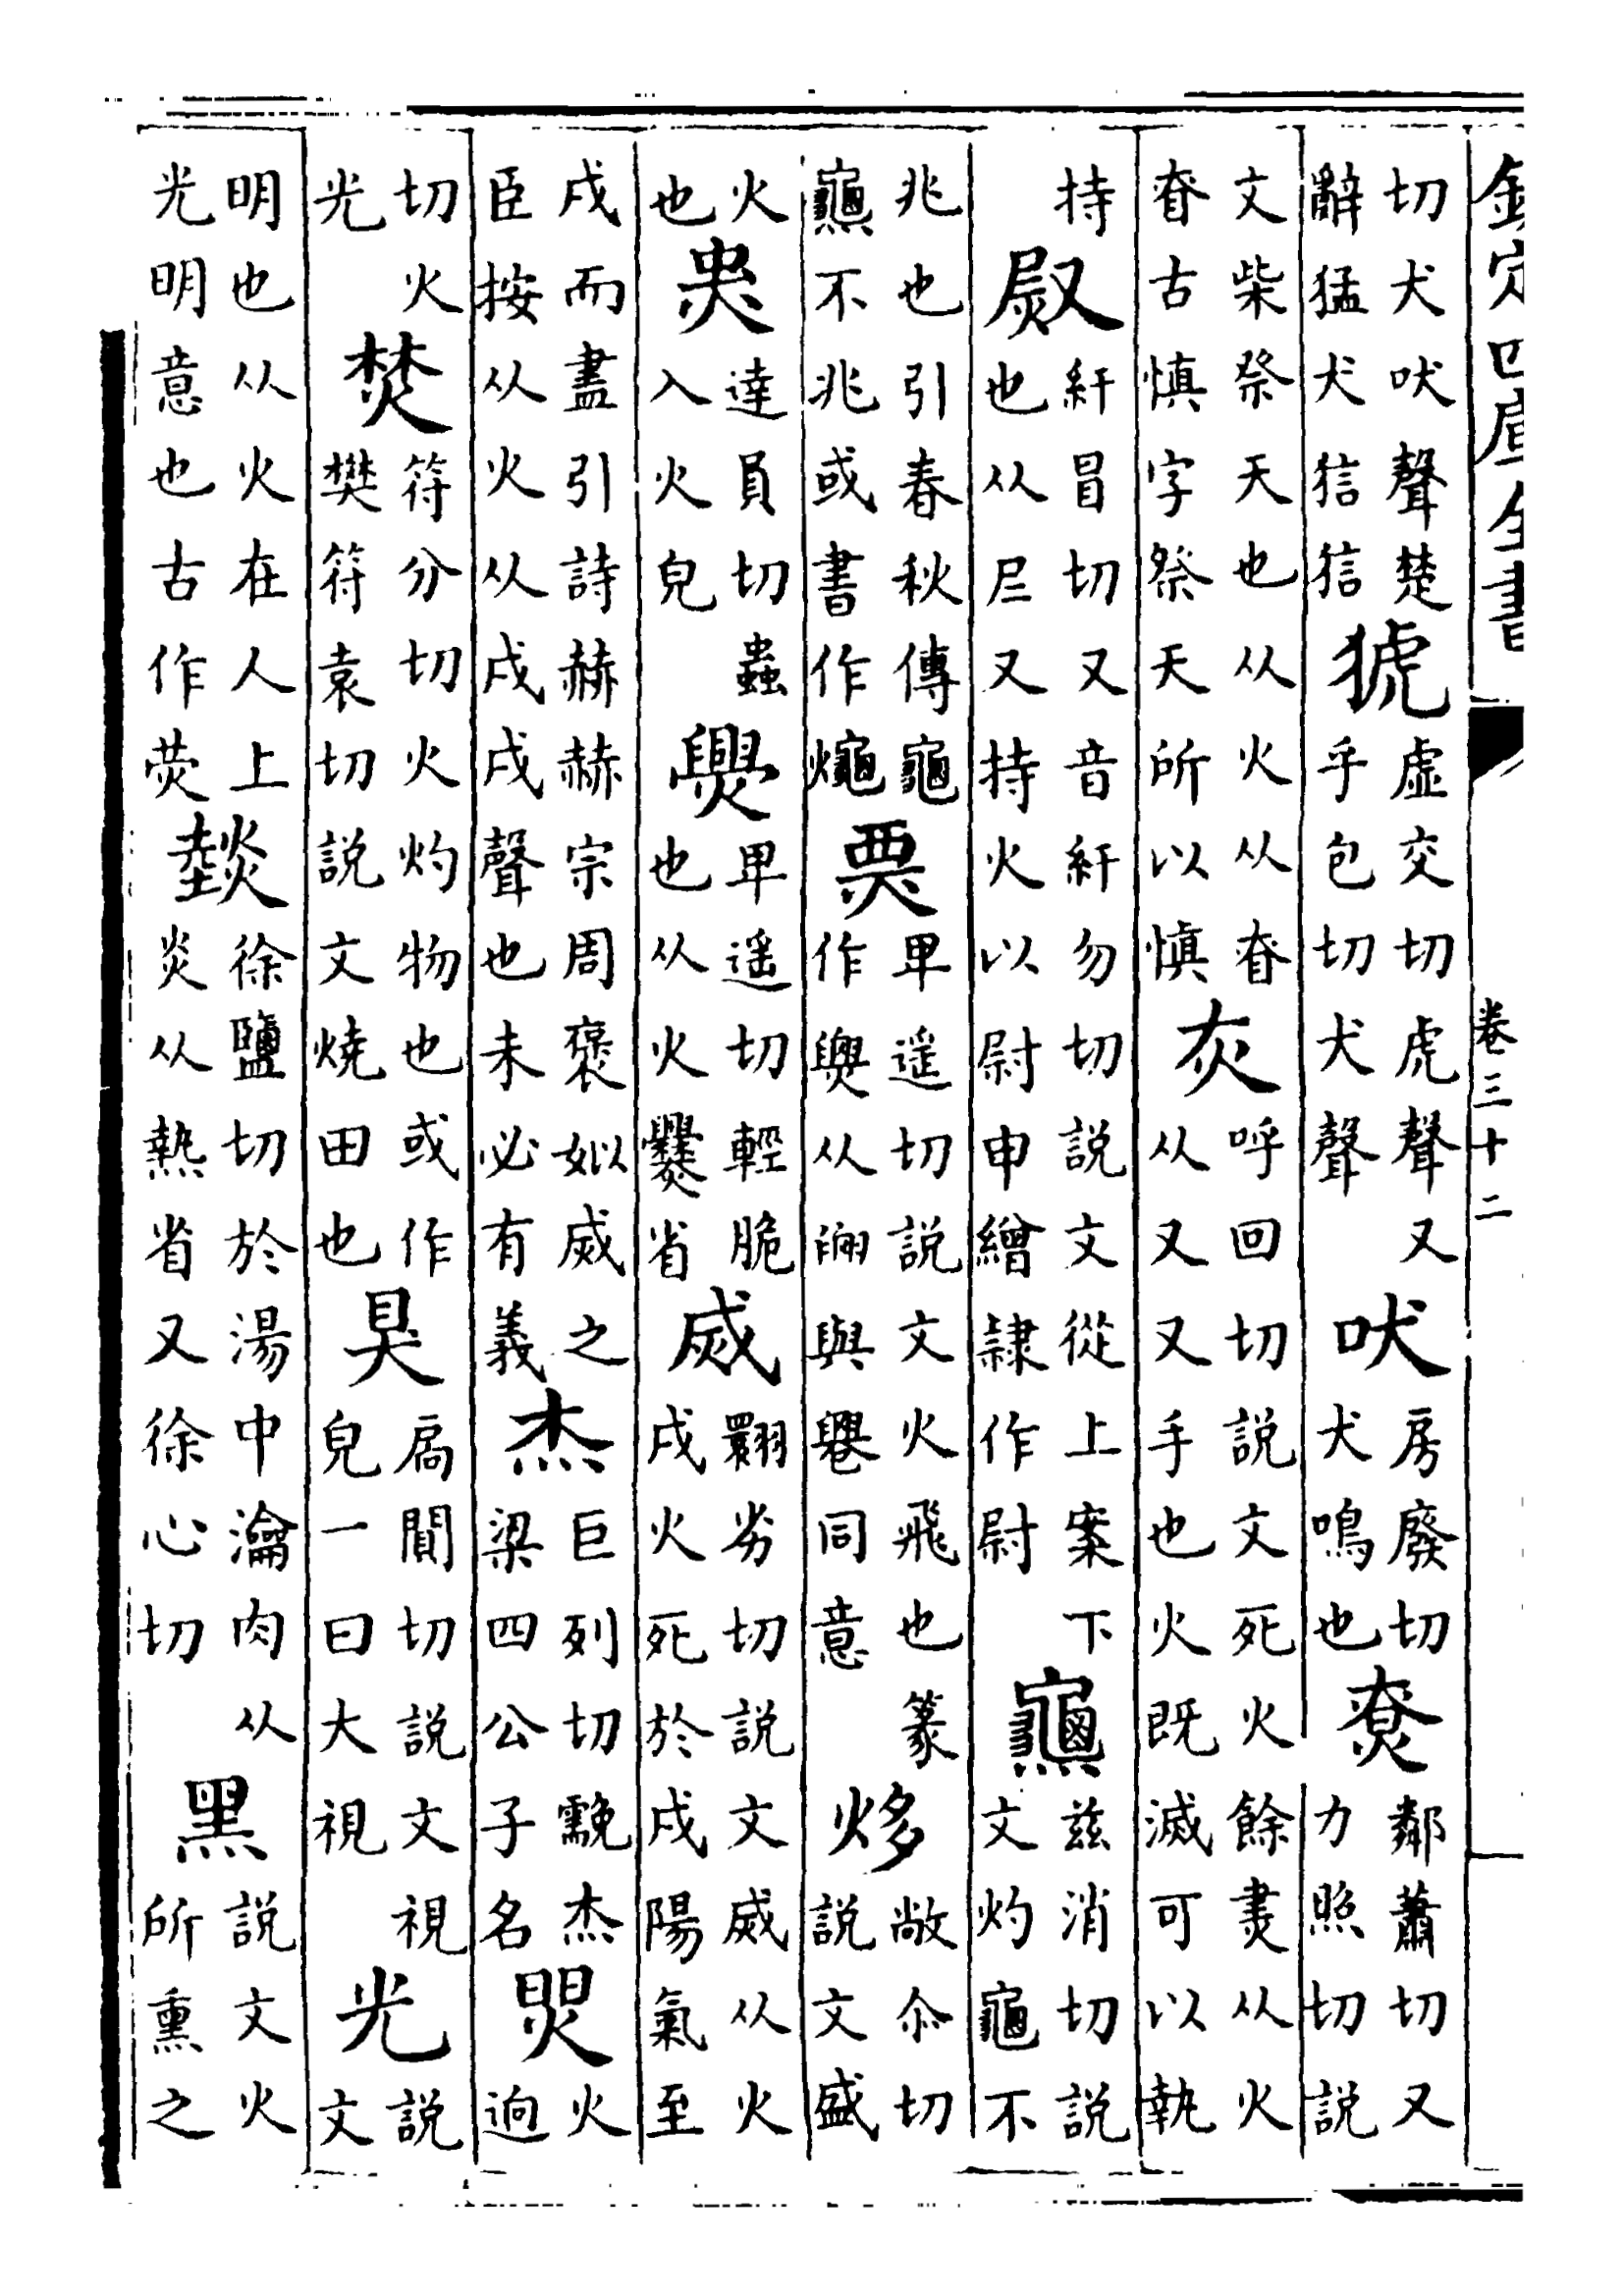 欽定四庫全書 卷三十二
切犬吠聲楚辭猛犬狺狺猇虛交切虎聲又乎包切犬聲吠房廢切犬鳴也尞鄰蕭切又力照切說
文柴祭天也从火从昚昚古慎字祭天所以慎灰呼回切說文死火餘㶳从火从又又手也火既滅可以執
持㷉紆冒切又音紆勿切說文從上案下也从𡰥又持火以尉申繒隷作尉𪚰兹消切說文灼龜不
兆也引春秋傳龜𪚰不兆或書作票卑遥切說文火飛也篆作从與同意㶴敞尒切說文盛
火也達員切蟲入火皃卑遥切輕脆也从火爨省烕翾劣切說文烕从火戌火死於戌陽氣至
戌而盡引詩赫赫宗周褒姒烕之臣按从火从戌戌聲也未必有義杰巨列切杰梁四公子名炅火迥
切火光焚符分切火灼物也或作樊符袁切說文燒田也狊扃闃切說文視皃一曰大視光說文
明也从火在人上光明意也古作炗徐鹽切於湯中瀹肉从炎从熱省又徐心切黑說文火所熏之